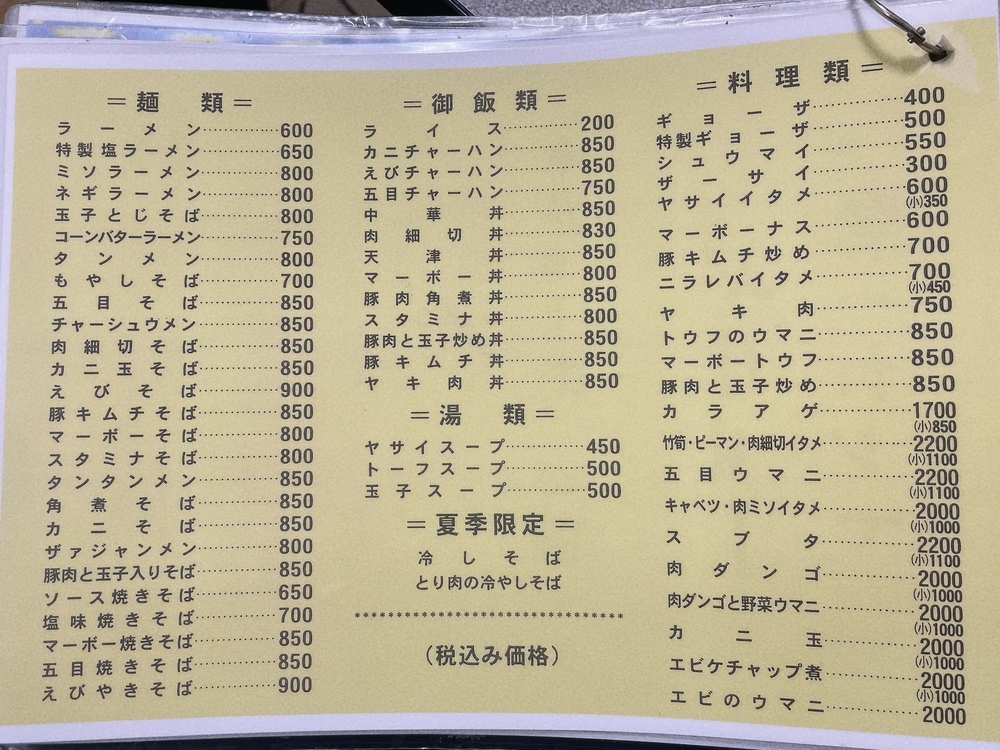 =麺類=
ラーメン 600
特製塩ラーメン 650
ミソラーメン 800
ネギラーメン 800
玉子とじそば 800
コーンバターラーメン 750
タンメン 800
もやしそば 700
五目そば 850
チャーシュウメン 850
肉細切そば 850
カニ玉そば 850
えびそば 900
豚キムチそば 850
マーボーそば 800
スタミナそば 800
タンタンメン 850
角煮そば 850
カニそば 850
ザァジャンメン 800
豚肉と玉子入りそば 850
ソース焼きそば 650
塩味焼きそば 700
マーボー焼きそば 850
五目焼きそば 850
えびやきそば 900
=御飯類=
ライス 200
カニチャーハン 850
えびチャーハン 850
五目チャーハン 750
中華丼 850
肉細切丼 830
天津丼 850
マーボー丼 800
豚肉角煮丼 850
スタミナ丼 800
豚肉と玉子炒め丼 850
豚キムチ丼 850
ヤキ肉丼 850
=湯類=
ヤサイスープ 450
トーフスープ 500
玉子スープ 500
=夏季限定=
冷しそば
とり肉の冷やしそば
********************************
(税込み価格)
=料理類=
ギョーザ 400
特製ギョーザ 500
シュウマイ 550
ザーサイ 300
ヤサイイタメ 600
(小)350
マーボーナス 600
豚キムチ炒め 700
ニラレバイタメ 700
(小)450
ヤキ肉 750
トウフのウマニ 850
マーボートウフ 850
豚肉と玉子炒め 850
カラアゲ 1700
(小)850
竹筍・ピーマン・肉細切イタメ 2200
(小)1100
五目ウマニ 2200
(小)1100
キャベツ・肉ミソイタメ 2000
(小)1000
スブタ 2200
(小)1100
肉ダンゴ 2000
(小)1000
肉ダンゴと野菜ウマニ 2000
(小)1000
カニ玉 2000
(小)1000
エビケチャップ煮 2000
(小)1000
エビのウマニ 2000